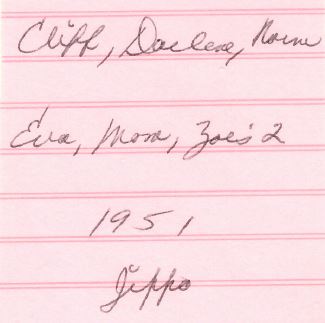 Cliff, Darlene, Norm
Eva, Mom, Zoe's 2
1951
Jippo